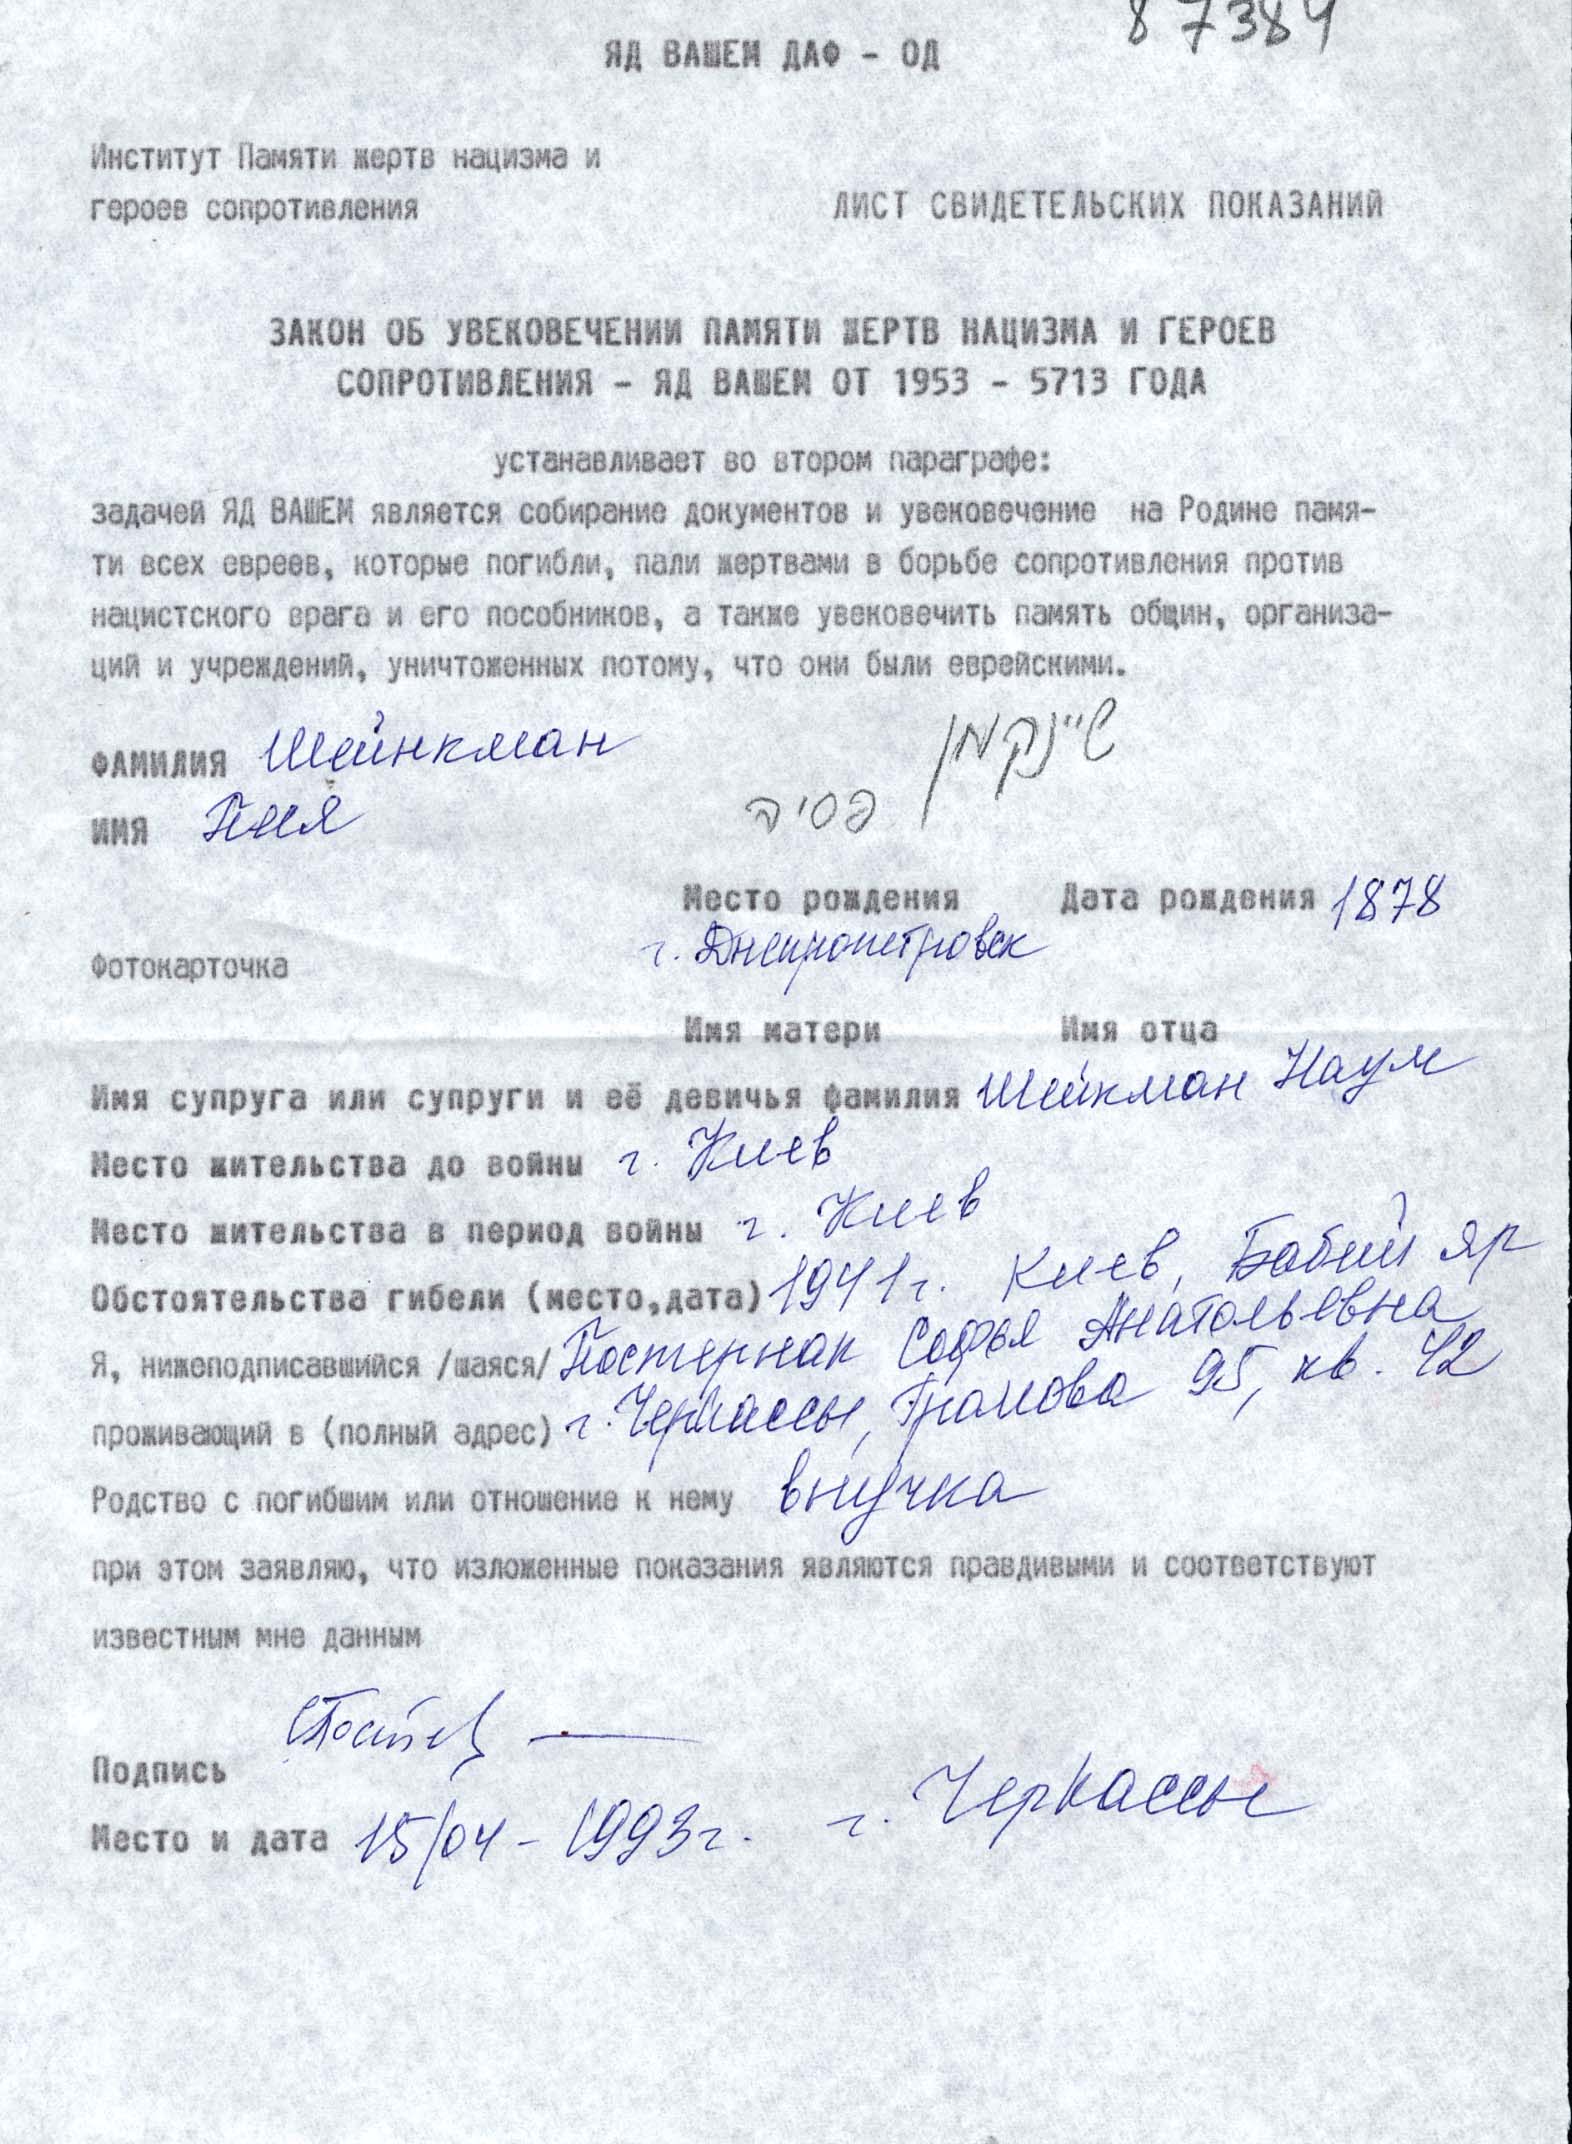 87384
ЯД ВАШЕМ ДАФ - ОД
Институт Памяти жертв нацизма и
героев сопротивления
ЛИСТ СВИДЕТЕЛЬСКИХ ПОКАЗАНИЙ
ЗАКОН ОБ УВЕКОВЕЧЕНИИ ПАМЯТИ ЖЕРТВ НАЦИЗМА И ГЕРОЕВ
СОПРОТИВЛЕНИЯ - ЯД ВАШЕМ ОТ 1953 - 5713 ГОДА
устанавливает во втором параграфе:
задачей ЯД ВАШЕМ является собирание документов и увековечение на Родине памя-
ти всех евреев, которые погибли, пали жертвами в борьбе сопротивления против
нацистского врага и его пособников, а также увековечить память общин, организа-
ций и учреждений, уничтоженных потому, что они были еврейскими.
ФАМИЛИЯ Шейнкман שיינקמן
ИМЯ פסיה
Место рождения Дата рождения 1878
г. Днепропетровск
Фотокарточка
Имя матери Имя отца
Имя супруга или супруги и её девичья фамилия Шейкман Наум
Место жительства до войны г. Киев
Место жительства в период войны г. Киев
Обстоятельства гибели (место,дата) 1941г. Киев, Бабий яр
Я, нижеподписавшийся /шаяся/ Постернак Софья Анатольевна
проживающий в (полный адрес) г. Черкассы, Громова 95, кв. 42
Родство с погибшим или отношение к нему внучка
при этом заявляю, что изложенные показания являются правдивыми и соответствуют
известным мне данным
Подпись
Место и дата 15/04-1993г. г. Черкассы